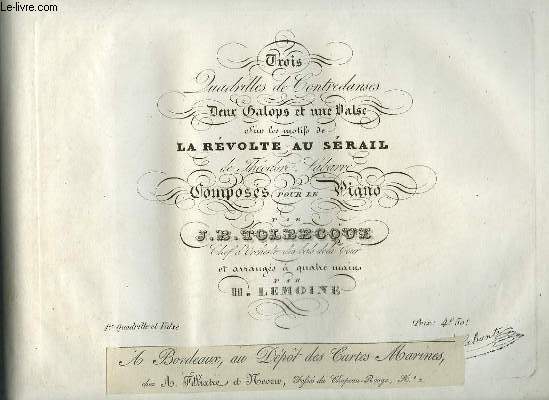 Le-livre.com
Trois
Quadrilles de Contredanses
Deux Galops et une Valse
Sur les motifs de
LA RÉVOLTE AU SÉRAIL
de Théodore Labarre
Composés POUR LE Piano
PAR
J. B. TOLBECQUE
Chef d'Orchestre des bals de la Cour
et arrangés à quatre mains
PAR
H. LEMOINE
1er Quadrille et Valse
Prix: 4f. 50c.
A Bordeaux, au Dépôt des Cartes Marines,
chez A. Filliatre et Neveu, Fossés du Chapeau-Rouge, N.° 2